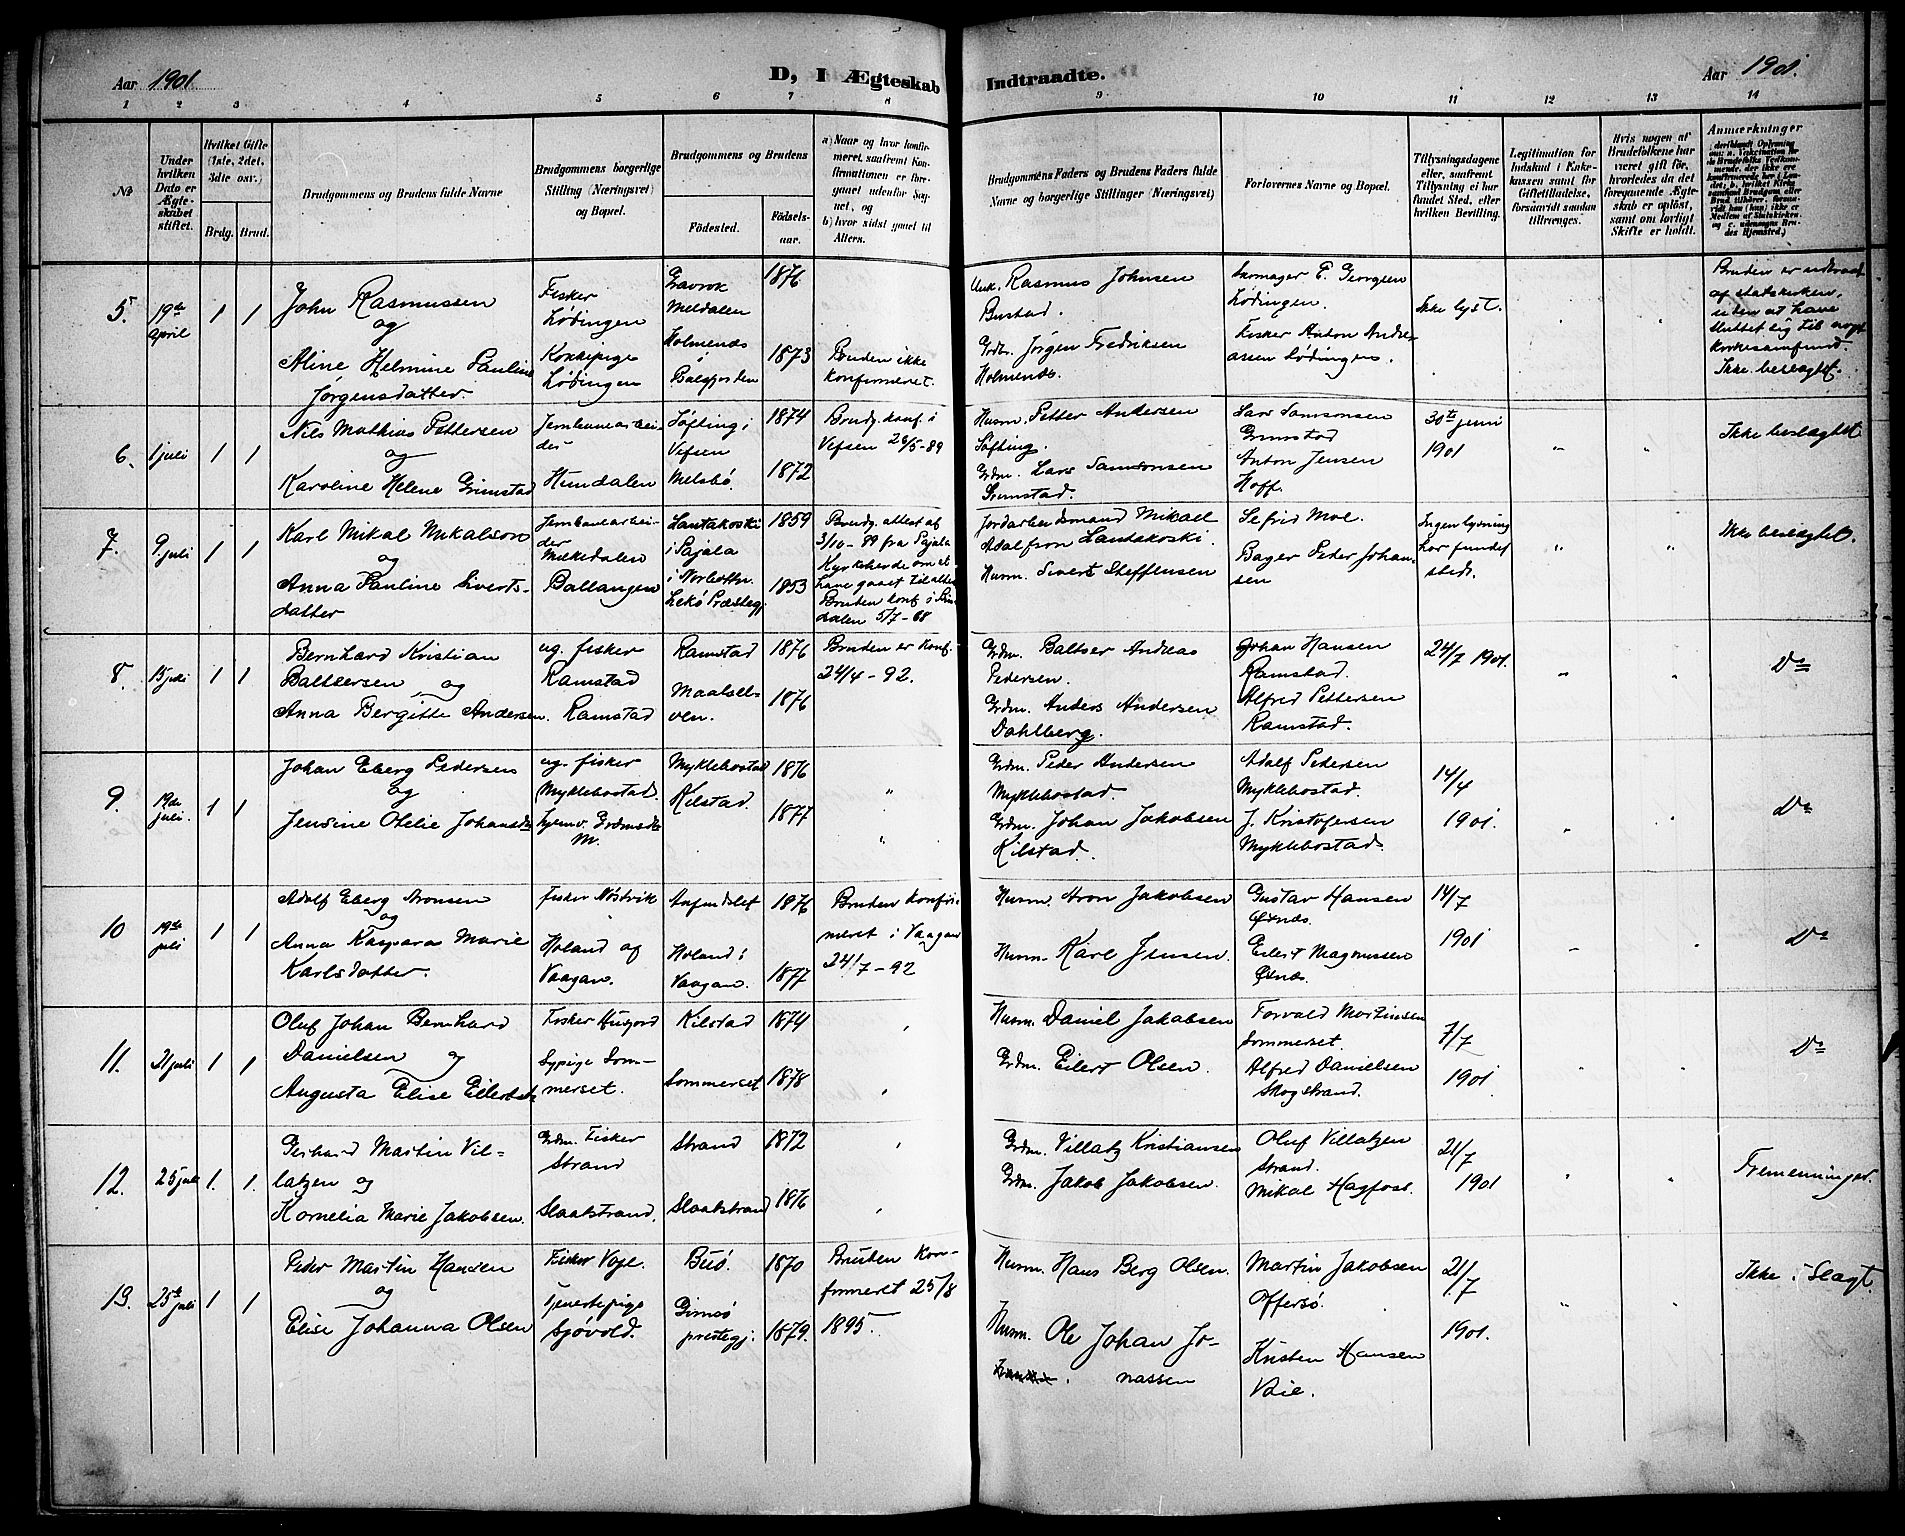 Aar 1901.
D, I Ægteskab Indtraadte.
Aar 1901.
1 2 3 4 5 6 7 8 9 10 11 12 13 14
No
Under hvilken Dato er Ægteskabet stiftet.
Hvilket Gifte (1ste, 2det, 3die osv.)
Brdg. Brud.
Brudgommens og Brudens fulde Navne
Brudgommens borgerlige Stilling (Næringsvei) og Bopæl.
Brudgommens og Brudens
Födested.
Födselsaar.
a) Naar og hvor konfirmeret, saafremt Konfirmationen er foregaaet udenfor Sognet, og
b) hvor sidst gaaet til Alters.
Brudgommens Faders og Brudens Faders fulde Navne og borgerlige Stillinger (Næringsvei)
Forlovernes Navne og Bopæl.
Tillysningsdagene eller, saafremt Tillysning ei har fundet Sted, efter hvilken Bevilling.
Legitimation for Indskud i Enkekassen samt for Giftetilladelse, forsaavidt saadan tiltrænges.
Hvis nogen af Brudefolkene har været gift för, hvorledes da det foregaaende Ægteskab er oplöst, samt om lovligt Skifte er holdt.
Anmærkninger
5. 19de april 1 1
John Rasmussen
og
Aline Helmine Pauline
Jørgensdatter
Fisker
Lødingen
Kokkepige
Lødingen
Gravrok
Meldalen
Holmenes
i
Balsfjorden
1876
1873
Bruden ikke
konfirmeret.
Unk. Rasmus Johnsen
Bustad.
Grdbr. Jørgen Fredriksen
Holmenes.
Skomager E. Georgsen
Lødingen.
Fisker Anton Andreassen Lødingen.
Ikke lyst.
Bruden er udtraadt
af statskirken,
uden at have
sluttet sig til noget
kirkesamfund.
Ikke beslægtet.
6. 1 juli 1 1
Nils Mathias Pettersen
og
Karoline Helene Grimstad
Jernbanearbeider
Hundalen
Søfting i
Vefsen
Melsbö.
1874
1872
Brudg. konf. i
Vefsen 26/5-89
Husm. Petter Andersen
Søfting.
Grdm. Lars Samsonsen
Grimstad.
Lars Samsonsen
Grimstad
Anton Jensen
Hoff.
30te juni
1901
Ikke beslægtet
7. 9 juli 1 1
Karl Mikal Mikalson
og
Anna Pauline Sivertsdatter
Jernbanearbeider
Melkedalen
Ballangen
Lantakoski
i Pajala
i Norbotten
Lekö Præstegj.
1859
1853
Brudg. attest af
3/10-89 fra Pajala
Kyrkoherde om at
have gaaet til alters
Bruden konf. i Sundalen 5/7-68
Jordarbeidsmand Mikael
Adalfron Lantakoski.
Husm. Sivert Steffensen
Sefrid Moe.
Bager Peder Johansen
Ingen lysning
har fundet
sted.
Ikke beslægtet.
8. 15 juli 1 1
Bernhard Kristian
Baltsersen og
Anna Bergitte Andersen.
ug. fisker
Ramstad
Ramstad
Ramstad
Maalselven.
1876
1876
Bruden er konf.
24/4-92.
Grdm. Baltser Andreas
Pedersen.
Grdm. Anders Andersen
Dahlberg.
Johan Hansen
Ramstad.
Alfred Pettersen
Ramstad.
24/7 1901.
Do
9. 19de juli. 1 1
Johan Eberg Pedersen
og
Jensine Otelie Johansdtr
ug. fisker
Myklebostad.
hjemv. Grdmsdtr
M.
Myklebostad
Kilstad.
1876
1877
Grdm. Peder Andersen
Myklebostad.
Grdm. Johan Jakobsen
Kilstad.
Adolf Pedersen
Myklebostad.
J. Kristofersen
Myklebostad.
14/4
1901.
Do
10 19de juli 1 1
Adolf Eberg Aronsen
og
Anna Kaspara Marie
Karlsdatter.
Fisker Nøstvik
Holand af
Vaagan.
Anfindslet
Holand i
Vaagan.
1876
1877
Bruden konfirmeret i Vaagan
24/7-92
Husm. Aron Jakobsen
Husm. Karl Jensen.
Gustav Hansen
Øxnes.
Eilert Magnussen
Øxnes.
14/7
1901
Do
11. 21 juli 1 1
Oluf Johan Bernhard
Danielsen og
Augusta Elise Eilertsdtr
Fisker Husjord
Sypige Sommerset.
Kilstad
Sommerset
1874
1878
Husm. Daniel Jakobsen
Grdm. Eilert Olsen.
Torvald Martinsen
Sommerset.
Alfred Danielsen
Skogstrand.
7/7
1901
Do
12. 25 juli 1. 1.
Gerhard Martin Villatzen og
Kornelia Marie Jakobsen.
Grdm. Fisker
Strand
Slaatstrand.
Strand
Slaatstrand
1872
1876
Grdm. Villatz Kristiansen
Grdm. Jakob Jakobsen.
Oluf Villatzen
Strand.
Mikal Hagfost.
21/7
1901
Fremenninger.
13. 25de juli 1 1
Peder Martin Hansen
og
Elise Johanna Olsen
Fisker Voje.
Tjenestepige
Sjøvold.
Buö.
Gimsö
prestegj.
1870
1879.
Bruden konformeret 25/8
1895.
Husm. Hans Berg Olsen.
Husm. Ole Johan Jonassen
Martin Jakobsen
Offersø.
Kristen Hansen
Voie.
21/7
1901.
Ikke i Slagt.